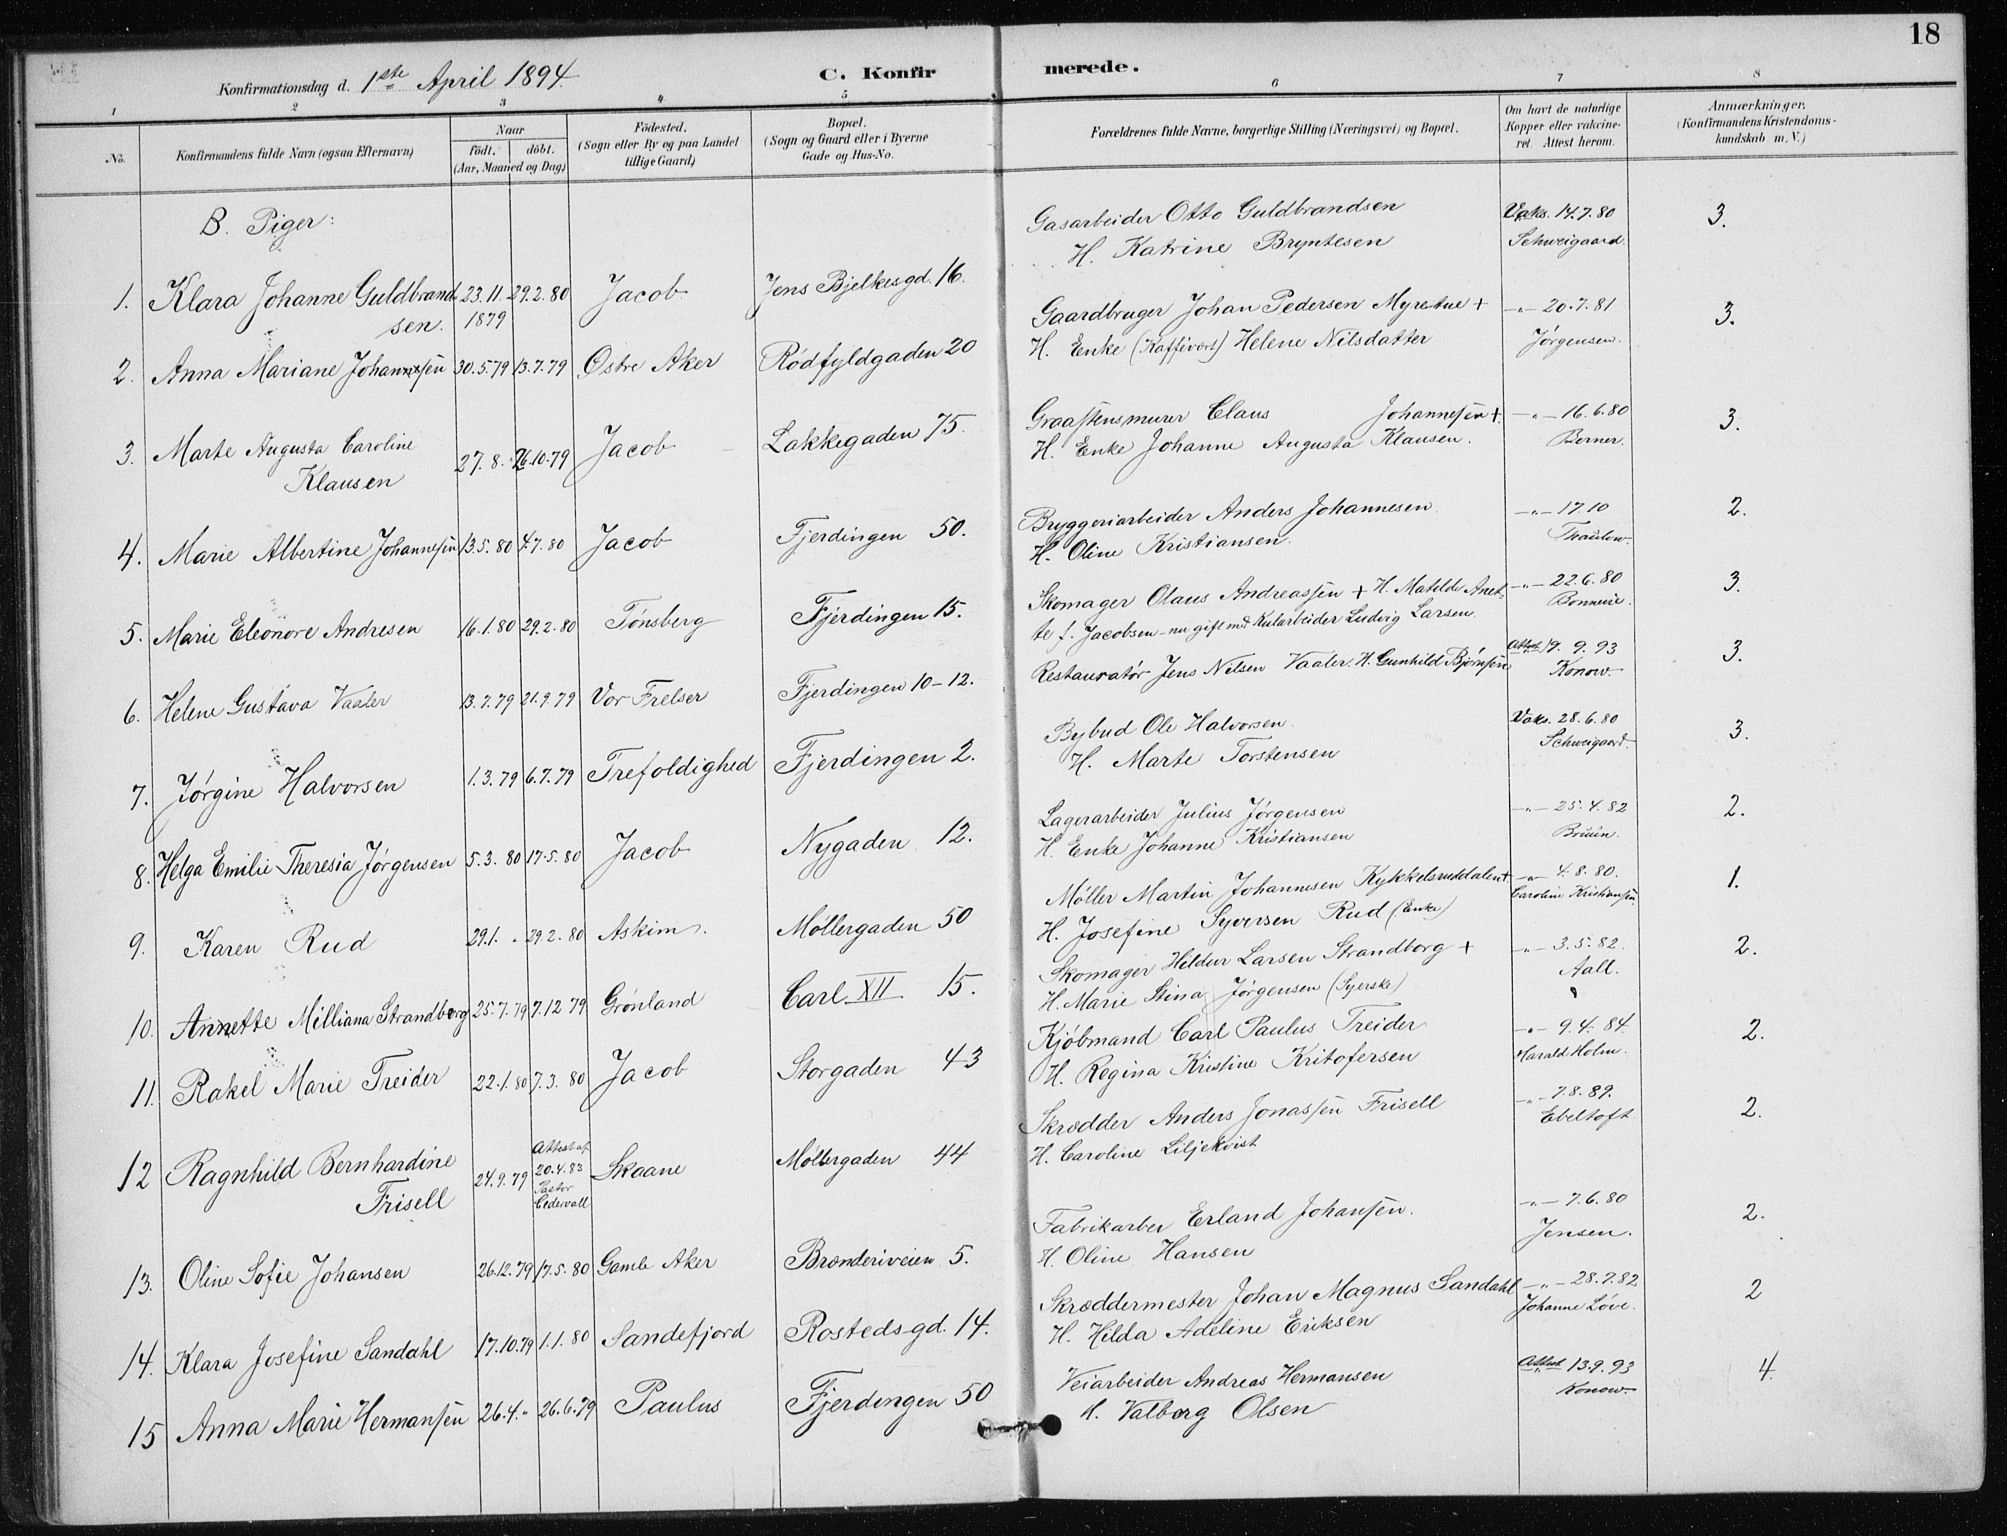 18
Konfirmationsdag d. 1ste April 1894.
C. Konfirmerede.
1 2 3 4 5 6 7 8
No.
Konfirmandens fulde Navn (ogsaa Efternavn)
Naar
födt. döbt.
(Aar, Maaned og Dag)
Födested.
(Sogn eller By og paa Landet
tillige Gaard)
Bopæl.
(Sogn og Gaard eller i Byerne
Gade og Hus-No.
Forældrenes fulde Navne, borgerlige Stilling (Næringsvei) og Bopæl.
Om havt de naturlige
Kopper eller vakcine-
ret. Attest herom.
Anmærkninger.
(Konfirmandens Kristendoms-
kundskab m. V.)
B. Piger:
1. Klara Johanne Guldbrand- 23.11. 29.2.80 Jacob Jens Bjelkesgd. 16. Gasarbeider Otto Guldbrandsen Vaks. 14.7.80 3.
sen. 1879 H. Katrine Bryntesen Schweigaard.
2. Anna Mariane Johannesen 30.5.79 13.7.79 Østre Aker Rødfyldgaden 20 Gaardbruger Johan Pedersen Myrestue + -"- 20.7.81 3.
H. Enke (Kaffivert) Helene Nilsdatter Jørgensen.
3. Marte Augusta Caroline 27.8. 26.10.79 Jacob Lakkegaden 75. Graastensmurer Claus Johannesen +. -"- 16.6.80 3.
Klausen H. Enke Johanne Augusta Klausen. Berner.
4. Marie Albertine Johannesen 13.5.80 4.7.80 Jacob Fjerdingen 50. Bryggeriarbeider Anders Johannesen -"- 17.10 2.
H. Oline Kristiansen. Thaulow.
5. Marie Eleonore Andresen 16.1.80 29.2.80 Tønsberg Fjerdingen 15. Skomager Olaus Andreassen + H. Matilde Anet- -"- 22.6.80 3.
te f. Jacobsen - nu gift med Kularbeider Ludvig Larsen.
6. Helene Gustava Vaaler 13.7.79 21.9.79 Vor Frelser Fjerdingen 10-12. Restauratør Jens Nilsen Vaaler. H. Gunhild Bjørnsen Attest 19.9.93 3.
Konow.
7. Jørgine Halvorsen 1.3.79 6.7.79 Trefoldighed Fjerdingen 2. Bybud Ole Halvorsen. Vaks. 28.6.80 3.
H. Marte Torstensen Schweigaard.
8. Helga Emilie Theresia Jørgensen 5.3.80 17.5.80 Jacob Nygaden 12. Lagerarbeider Julius Jørgensen -"- 25.4.82 2.
H. Enke Johanne Kristiansen Bruun.
9. Karen Rud 29.1. " 29.2.80 Askim. Møllergaden 50 Møller Martin Johannesen Kykkelsruddalen + -"- 4.8.80. 1.
H. Josefine Syversen Rud (Enke) Caroline Kristiansen
10. Annette Milliana Strandborg 25.7.79 7.12 79 Grønland Carl XII 15. Skomager Hildur Larsen Strandborg + -"- 3.5.82. 2.
H. Marie Stina Jørgensen (Syerske) Aall.
11. Rakel Marie Treider 22.1.80 7.3.80 Jacob Storgaden 43 Kjøbmand Carl Paulus Treider -"- 9.4.84. 2.
H. Regina Kristine Kritofersen Harald Holm.
12 Ragnhild Bernhardine 24.9.79 Attest af Skaane Møllergaden 44 Skrædder Anders Jonassen Frisell -"- 7.8.89. 2.
Frisell 20.4.83 H. Caroline Liljekvist Ebeltoft
Pastor
Cedervall
13. Oline Sofie Johansen 26.12.79 17.5.80 Gamle Aker Brænderiveien 5. Fabrikarber Erland Johansen. -"- 7.6.80 2.
H. Oline Hansen Jensen.
14. Klara Josefine Sandahl 17.10.79 1.1.80 Sandefjord Rosteds-gd. 14. Skræddermester Johan Magnus Sandahl -"- 28.7.82 2
H. Hilda Adeline Eriksen Johanne Løve.
15 Anna Marie Hermansen 26.4." 26.6.79 Paulus Fjerdingen 50 Veiarbeider Andreas Hermansen Attest 13.9.93 4.
H. Valborg Olsen Konow